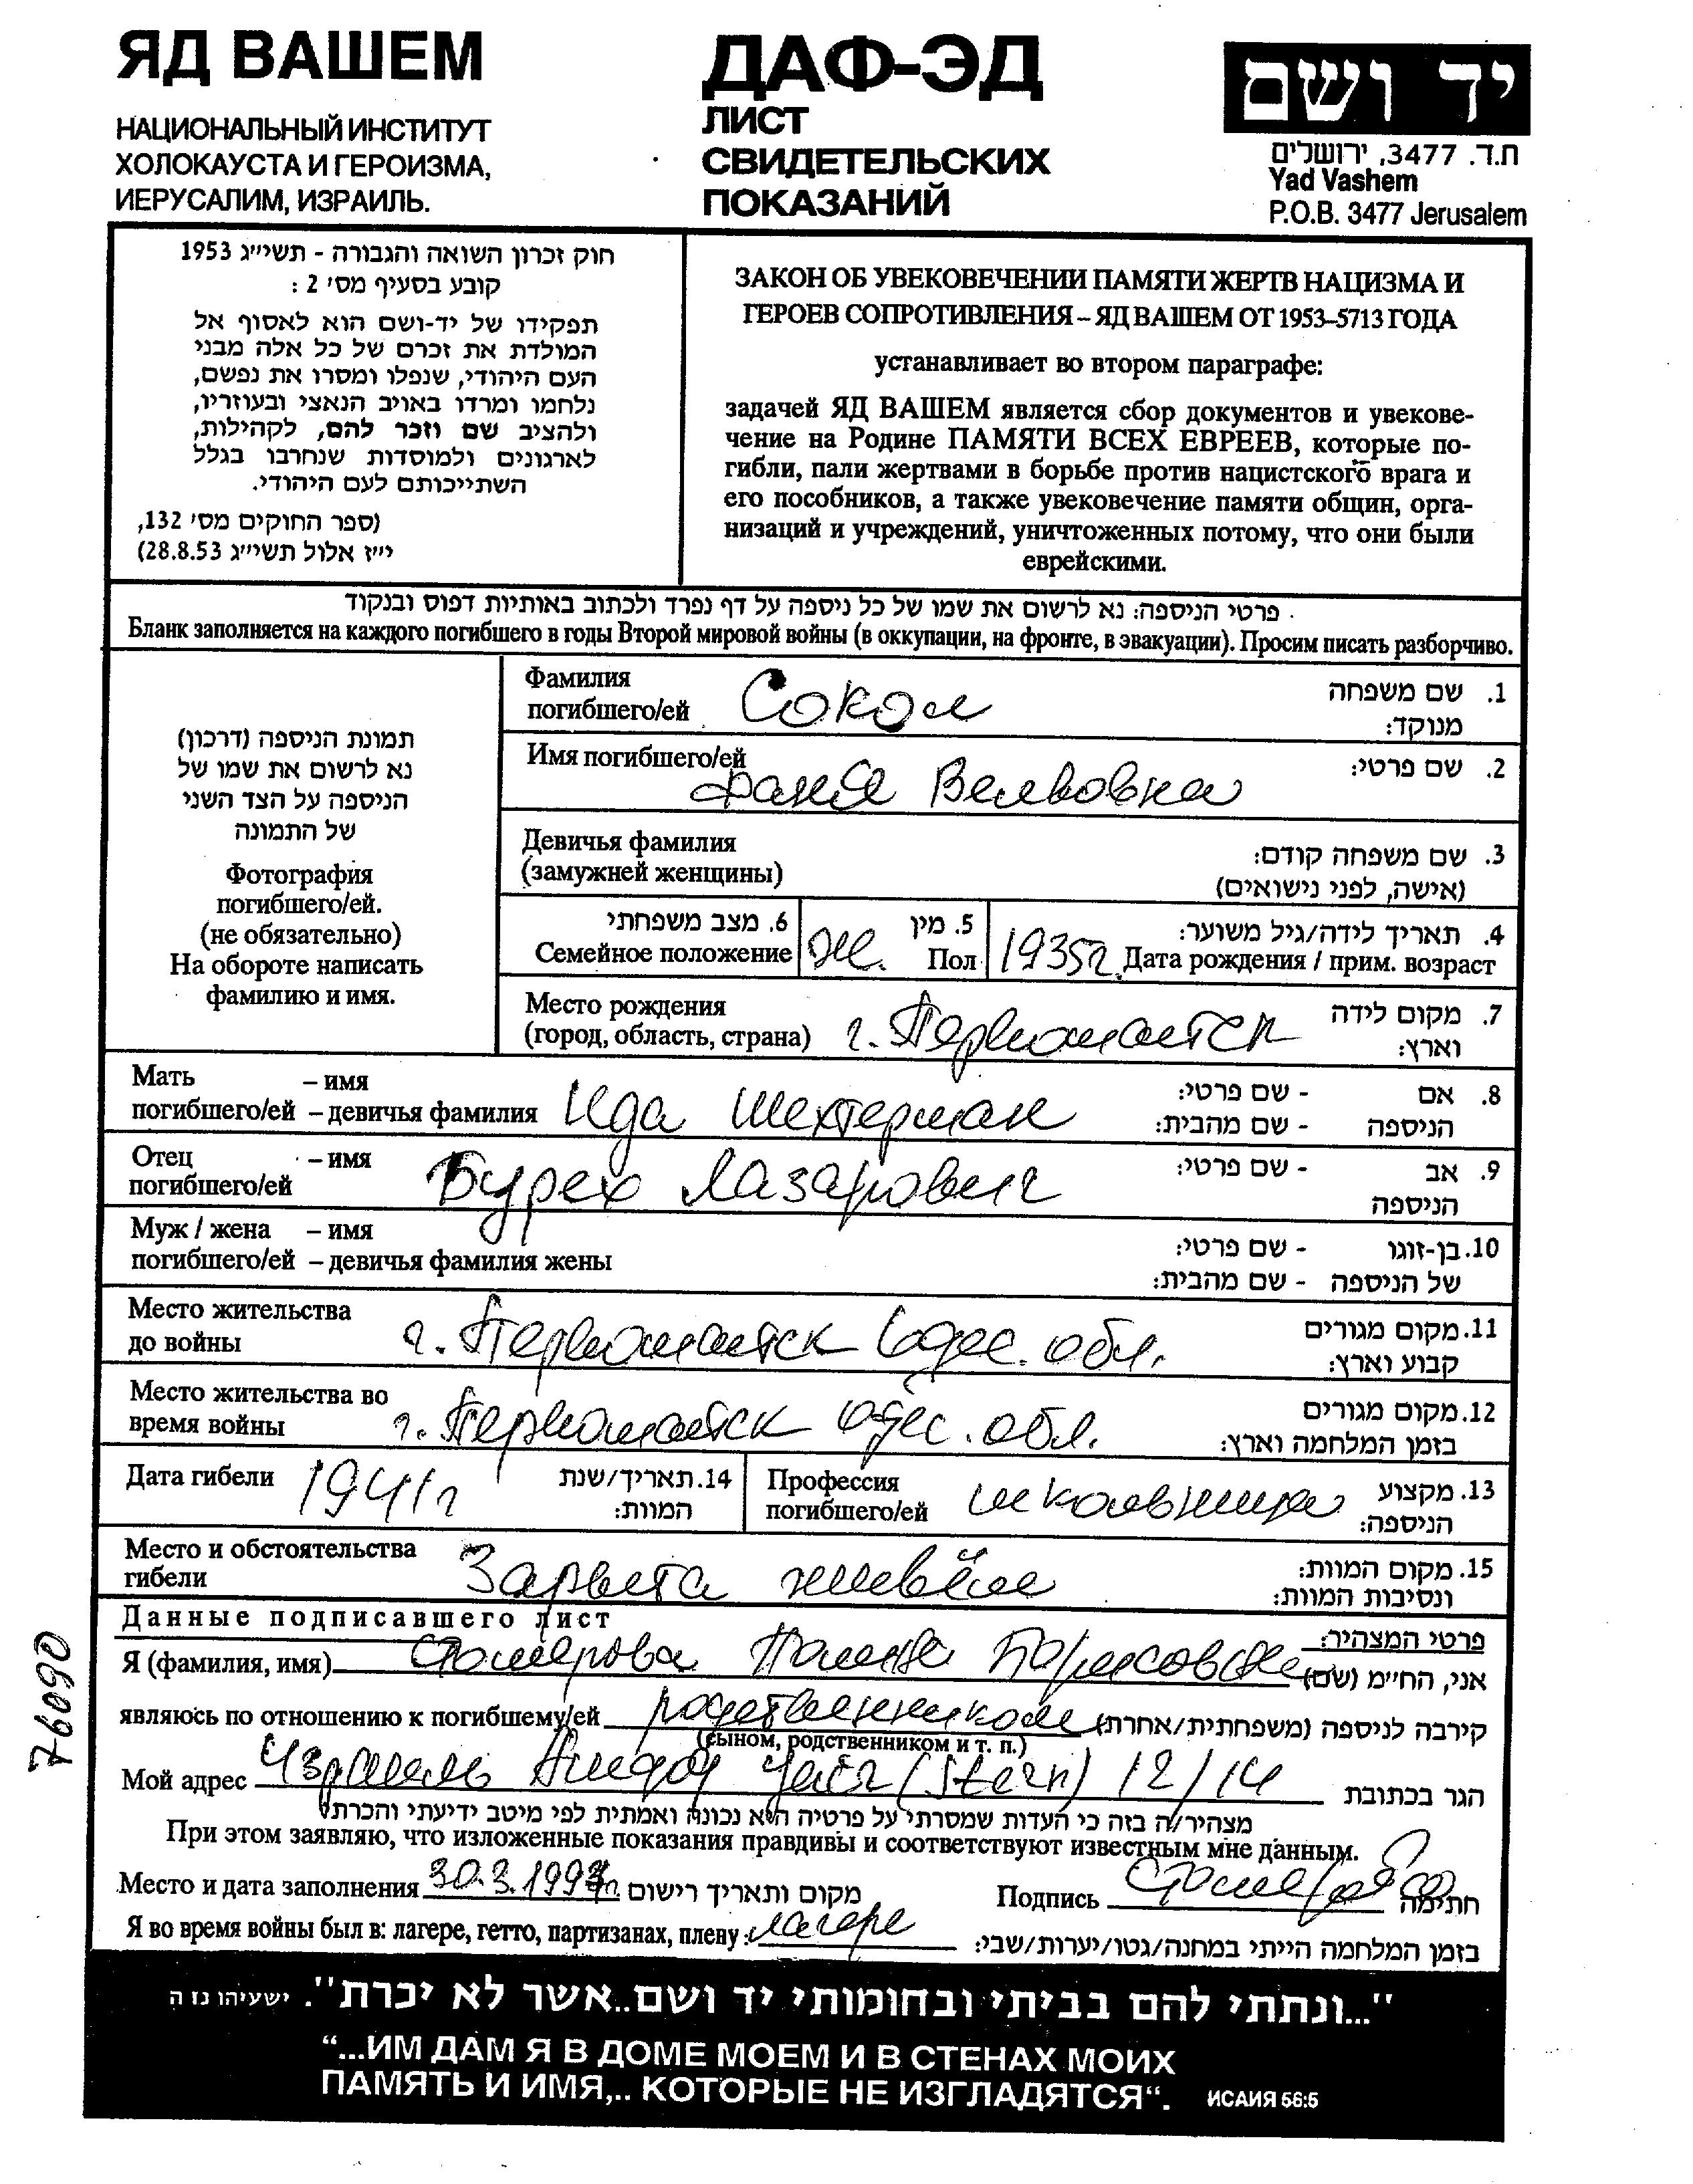 ЯД ВАШЕМ
НАЦИОНАЛЬНЫЙ ИНСТИТУТ
ХОЛОКАУСТА И ГЕРОИЗМА,
ИЕРУСАЛИМ, ИЗРАИЛЬ.
ДАФ-ЭД
ЛИСТ
СВИДЕТЕЛЬСКИХ
ПОКАЗАНИЙ
יד ושם
ת.ד. 3477, ירושלים
Yad Vashem
P.O.B. 3477 Jerusalem
חוק זכרון השואה והגבורה - תשי״ג 1953
קובע בסעיף מס׳ 2 :
תפקידו של יד-ושם הוא לאסוף אל
המולדת את זכרם של כל אלה מבני
העם היהודי, שנפלו ומסרו את נפשם,
נלחמו ומרדו באויב הנאצי ובעוזריו,
ולהציב שם וזכר להם, לקהילות,
לארגונים ולמוסדות שנחרבו בגלל
השתייכותם לעם היהודי.
(ספר החוקים מס׳ 132,
י״ז אלול תשי״ג 28.8.53)
ЗАКОН ОБ УВЕКОВЕЧЕНИИ ПАМЯТИ ЖЕРТВ НАЦИЗМА И
ГЕРОЕВ СОПРОТИВЛЕНИЯ – ЯД ВАШЕМ ОТ 1953–5713 ГОДА
устанавливает во втором параграфе:
задачей ЯД ВАШЕМ является сбор документов и увекове-
чение на Родине ПАМЯТИ ВСЕХ ЕВРЕЕВ, которые по-
гибли, пали жертвами в борьбе против нацистского врага и
его пособников, а также увековечение памяти общин, орга-
низаций и учреждений, уничтоженных потому, что они были
еврейскими.
פרטי הניספה: נא לרשום את שמו של כל ניספה על דף נפרד ולכתוב באותיות דפוס ובנקוד
Бланк заполняется на каждого погибшего в годы Второй мировой войны (в оккупации, на фронте, в эвакуации). Просим писать разборчиво.
תמונת הניספה (דרכון)
נא לרשום את שמו של
הניספה על הצד השני
של התמונה
Фотография
погибшего/ей.
(не обязательно)
На обороте написать
фамилию и имя.
Фамилия
погибшего/ей Сокол
1. שם משפחה
מנוקד:
Имя погибшего/ей
Фаня Велвовна
2. שם פרטי:
Девичья фамилия
(замужней женщины)
3. שם משפחה קודם:
(אישה, לפני נישואים)
6. מצב משפחתי
Семейное положение
5. מין
Же. Пол
4. תאריך לידה/גיל משוער:
1935г. Дата рождения / прим. возраст
Место рождения
(город, область, страна) г. Первомайск
7. מקום לידה
וארץ:
Мать – имя
погибшего/ей – девичья фамилия Ида Шехтерман
8. אם - שם פרטי:
הניספה - שם מהבית:
Отец – имя
погибшего/ей Бурех Лазарович
9. אב - שם פרטי:
הניספה
Муж / жена – имя
погибшего/ей – девичья фамилия жены
10. בן-זוגו - שם פרטי:
של הניספה - שם מהבית:
Место жительства
до войны г. Первомайск Одес. обл.
11. מקום מגורים
קבוע וארץ:
Место жительства во
время войны г. Первомайск Одес. обл.
12. מקום מגורים
בזמן המלחמה וארץ:
Дата гибели 1941г
14. תאריך/שנת
המוות:
Профессия
погибшего/ей школьница
13. מקצוע
הניספה:
Место и обстоятельства
гибели Зарыта живьём
15. מקום המוות:
ונסיבות המוות:
Данные подписавшего лист
פרטי המצהיר:
Я (фамилия, имя) Столерова Борисовна אני, החי״מ (שם)
являюсь по отношению к погибшему/ей родственником קירבה לניספה (משפחתית/אחרת)
(сыном, родственником и т. п.)
Мой адрес Израиль (Stern) 12/14 הגר בכתובת
מצהיר/ה בזה כי העדות שמסרתי על פרטיה היא נכונה ואמתית לפי מיטב ידיעתי והכרתי
При этом заявляю, что изложенные показания правдивы и соответствуют известным мне данным.
Место и дата заполнения 30.3.1997г מקום ותאריך רישום Подпись חתימה
Я во время войны был в: лагере, гетто, партизанах, плену: лагере בזמן המלחמה הייתי במחנה/גטו/יערות/שבי:
76090
"...ונתתי להם בביתי ובחומותי יד ושם..אשר לא יכרת". ישעיהו נז ה
“...ИМ ДАМ Я В ДОМЕ МОЕМ И В СТЕНАХ МОИХ
ПАМЯТЬ И ИМЯ,.. КОТОРЫЕ НЕ ИЗГЛАДЯТСЯ“. ИСАИЯ 56:5